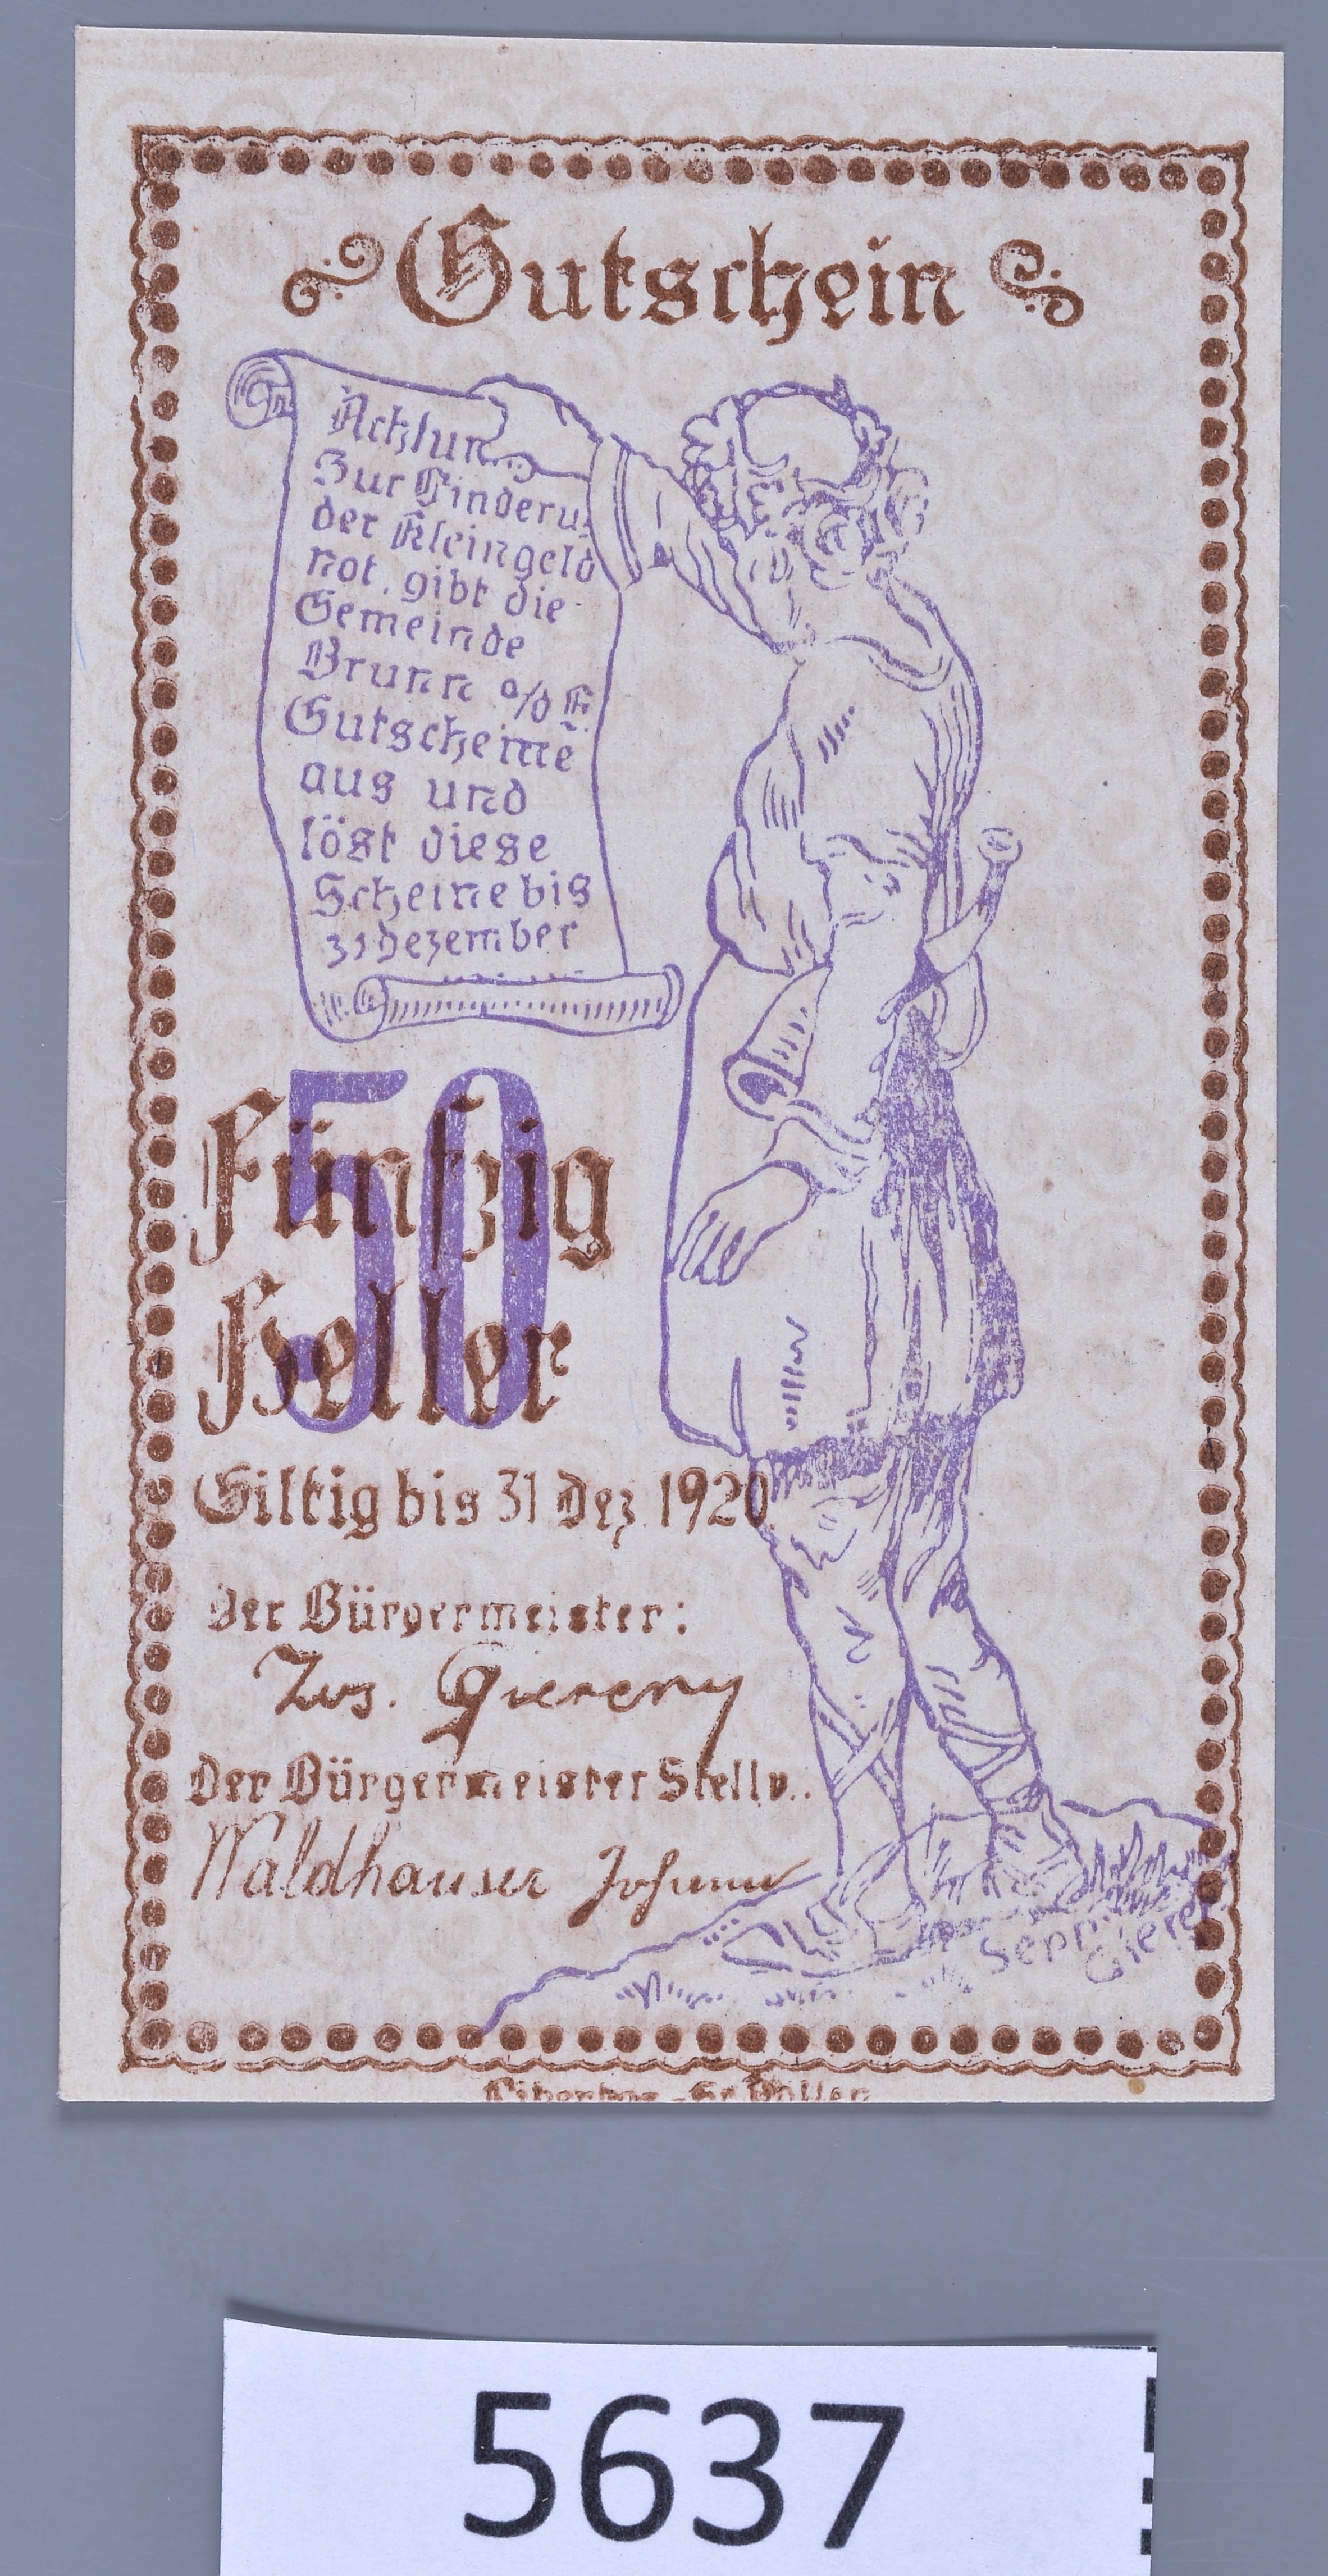 Gutschein
Achtung
Zur Linderu.
der Kleingeld
not. gibt die
Gemeinde
Brunn a/d E.
Gutscheine
aus und
löst diese
Scheine bis
31 Dezember
50
Fünfzig
Heller
Giltig bis 31 Dez. 1920
Der Bürgermeister:
Der Bürgermeister Stellv.:
Waldhauser Johann
Sepp.
Gierer
5637